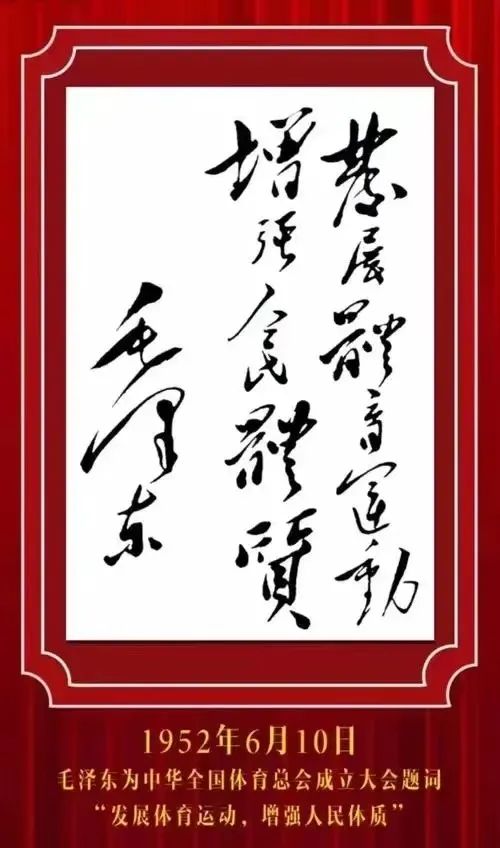 發展體育運動
增强人民體質
毛泽东
1952年6月10日
毛泽东为中华全国体育总会成立大会题词
“发展体育运动，增强人民体质”